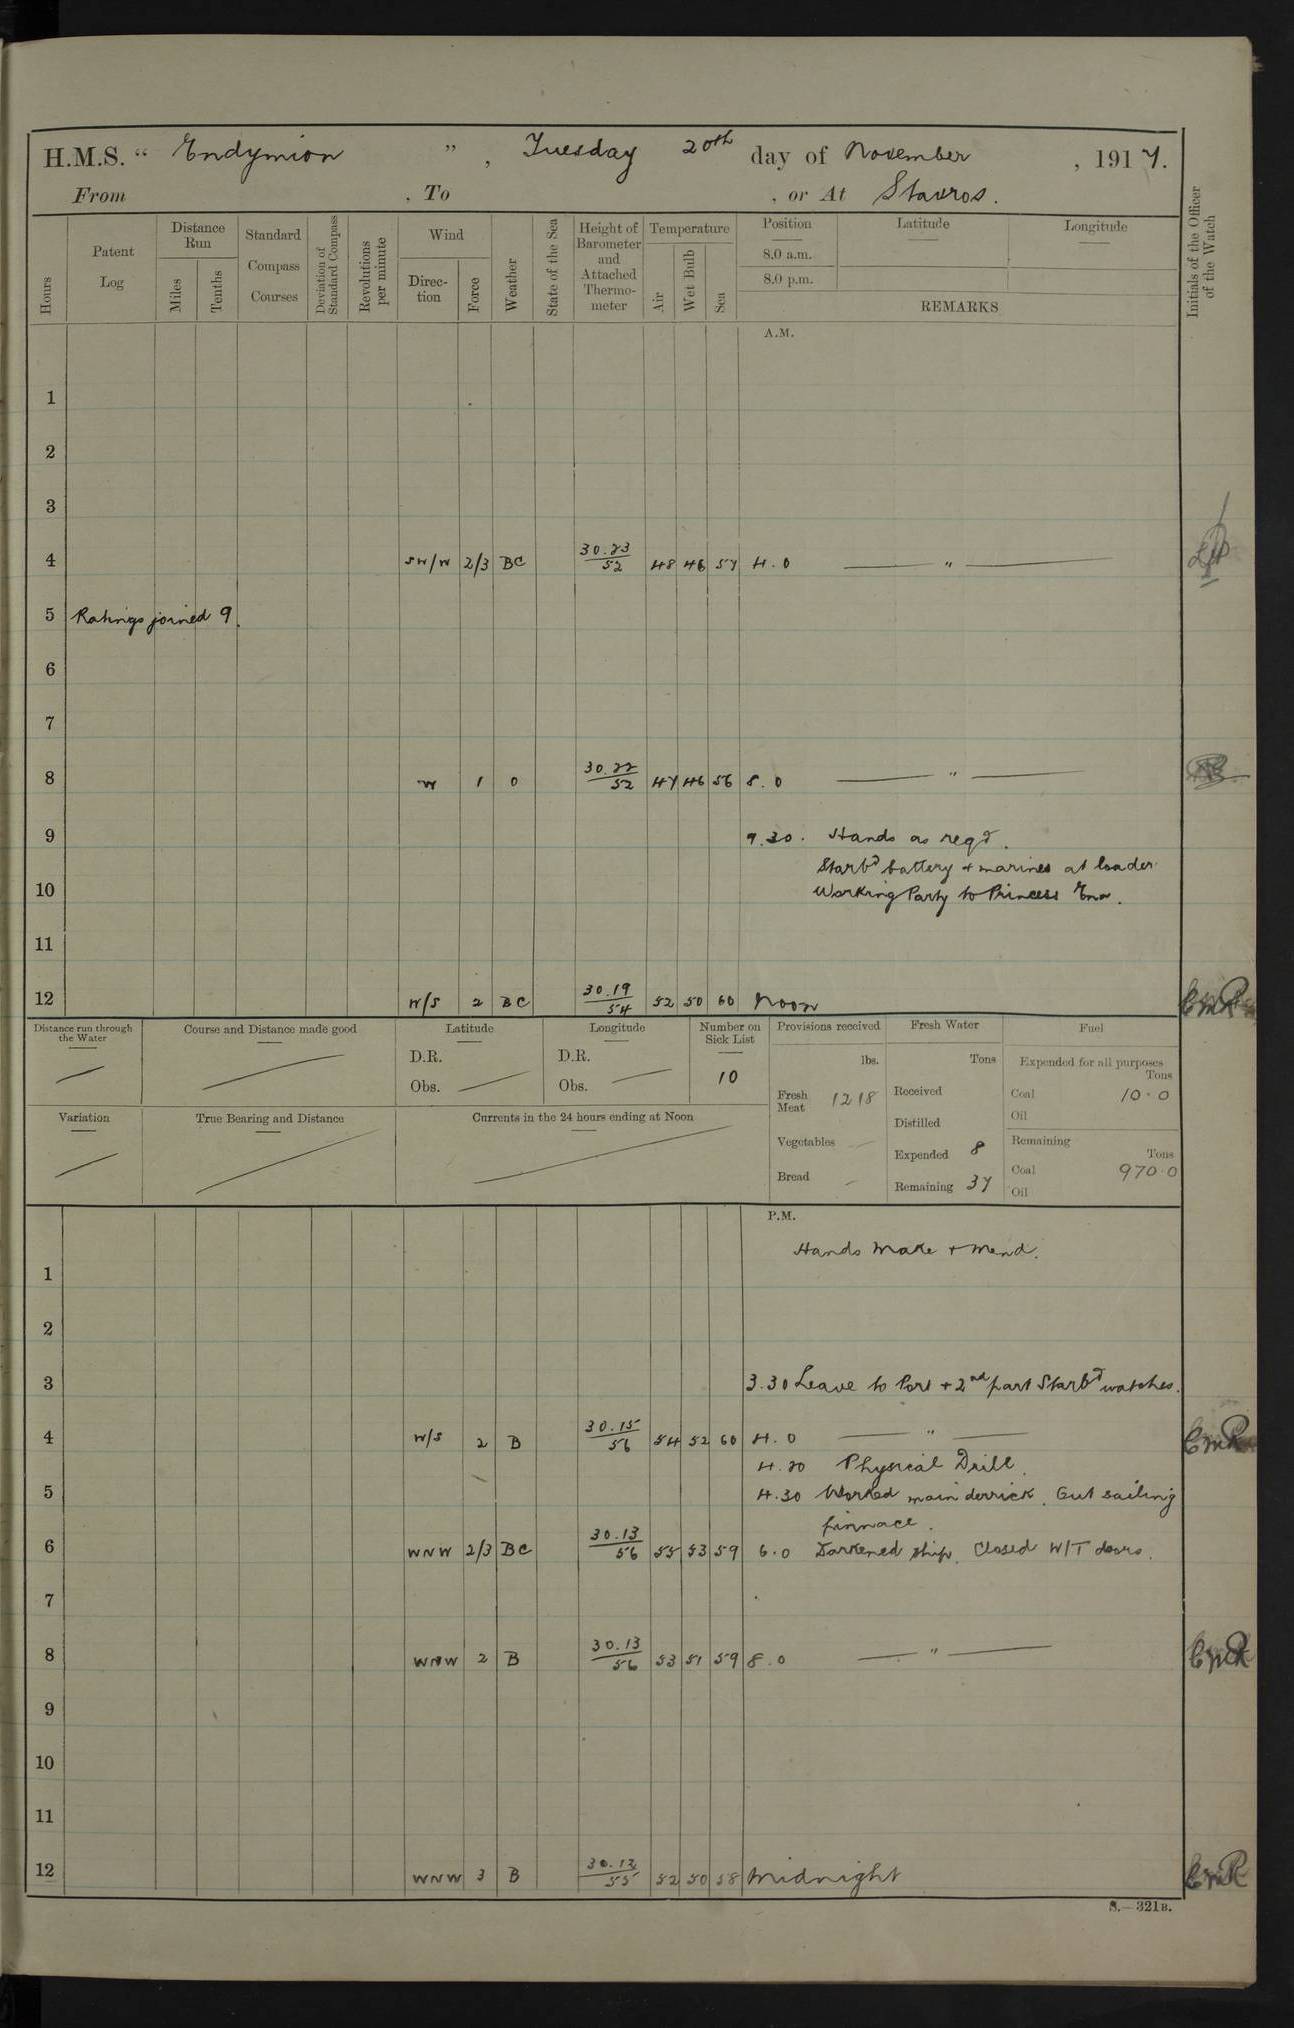 H.M.S. " Endymion ", Tuesday 20th day of November, 1917.
From , To , or At Stavros.
Hours
Patent Log
Distance Run
Miles
Tenths
Standard Compass Courses
Deviation of Standard Compass
Revolutions per minute
Wind
Direction
Force
Weather
State of the Sea
Height of Barometer and Attached Thermometer
Temperature
Air
Wet Bulb
Sea
Position
8.0 a.m.
8.0 p.m.
Latitude
Longitude
REMARKS
Initials of the Officer of the Watch
A.M.
1
2
3
4 SW/W 2/3 BC 30.23/52 48 46 57 4.0 — " —
5 Ratings joined 9.
6
7
8 W 1 O 30.22/52 47 46 56 8.0 — " —
9 9.30. Hands as reqd.
Starbd battery + marines at loader
10 Working Party to Princess Ena.
11
12 W/S 2 BC 30.19/54 52 50 60 Noon CMR
Distance run through the Water
Course and Distance made good
Latitude
D.R.
Obs.
Longitude
D.R.
Obs.
Number on Sick List
10
Provisions received
lbs.
Fresh Meat 1218
Vegetables —
Bread —
Fresh Water
Tons
Received
Distilled
Expended 8
Remaining 37
Fuel
Expended for all purposes
Tons
Coal 10.0
Oil
Remaining
Tons
Coal 970.0
Oil
Variation
True Bearing and Distance
Currents in the 24 hours ending at Noon
P.M.
Hands Make + Mend.
1
2
3 3.30 Leave to Port + 2nd part Starbd watches.
4 W/S 2 B 30.15/56 54 52 60 4.0 — " — CMR
4.20 Physical Drill.
5 4.30 Worked main derrick. Out sailing
pinnace.
6 WNW 2/3 BC 30.13/56 55 53 59 6.0 Darkened ship. Closed W/T doors.
7
8 WNW 2 B 30.13/56 53 51 59 8.0 — " — CMR
9
10
11
12 WNW 3 B 30.12/55 52 50 58 Midnight CMR
S.—321B.